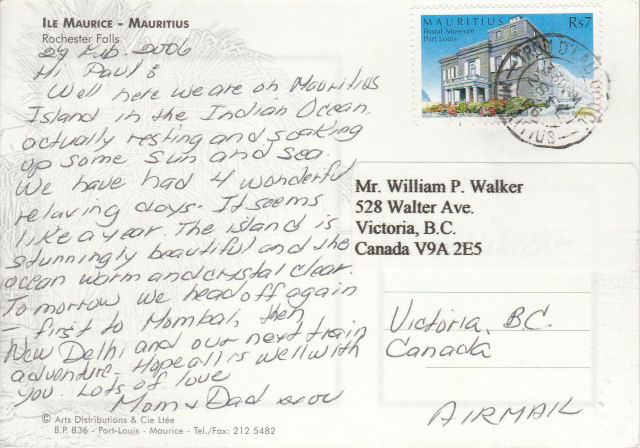 ILE MAURICE - MAURITIUS
Rochester Falls
29 Feb. 2006
Hi Paul:
Well here we are on Mauritius
Island in the Indian Ocean.
actually resting and soaking
up some sun and sea.
We have had 4 wonderful
relaxing days. It seems
like a year. The island is
stunningly beautiful and the
ocean warm and crystal clear.
Tomorrow we head off again
– first to Mombai, then
New Delhi and our next train
adventure. Hope all is well with
you. Lots of love
Mom & Dad
© Arts Distributions & Cie Ltée
B.P. 836 - Port-Louis - Maurice - Tel./Fax: 212 5482
MAURITIUS Rs7
Postal Museum
Port Louis
Mr. William P. Walker
528 Walter Ave.
Victoria, B.C.
Canada V9A 2E5
Victoria, B.C.
Canada
AIRMAIL